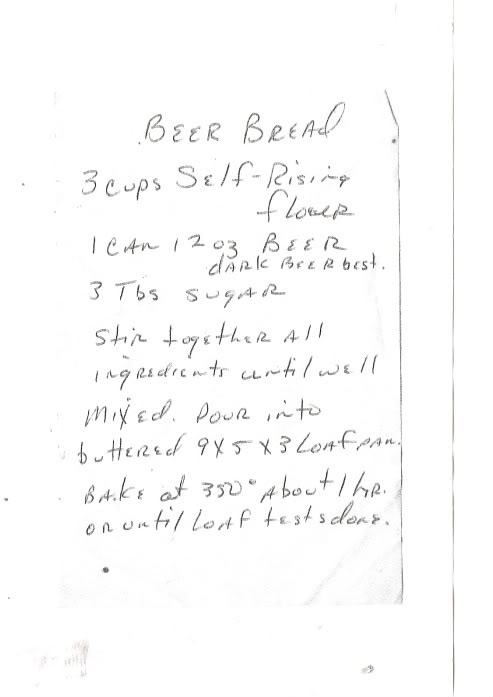 BEER BREAd
3 cups Self-Rising
flower
1 CAN 12 oz BEER
dARK BEER best.
3 Tbs sugAR
Stir togetheR All
ingRedients until well
Mixed. Pour into
butteRed 9x5x3 LOAf pAN.
BAke at 350° About 1 hR.
oR until LOAf tests done.